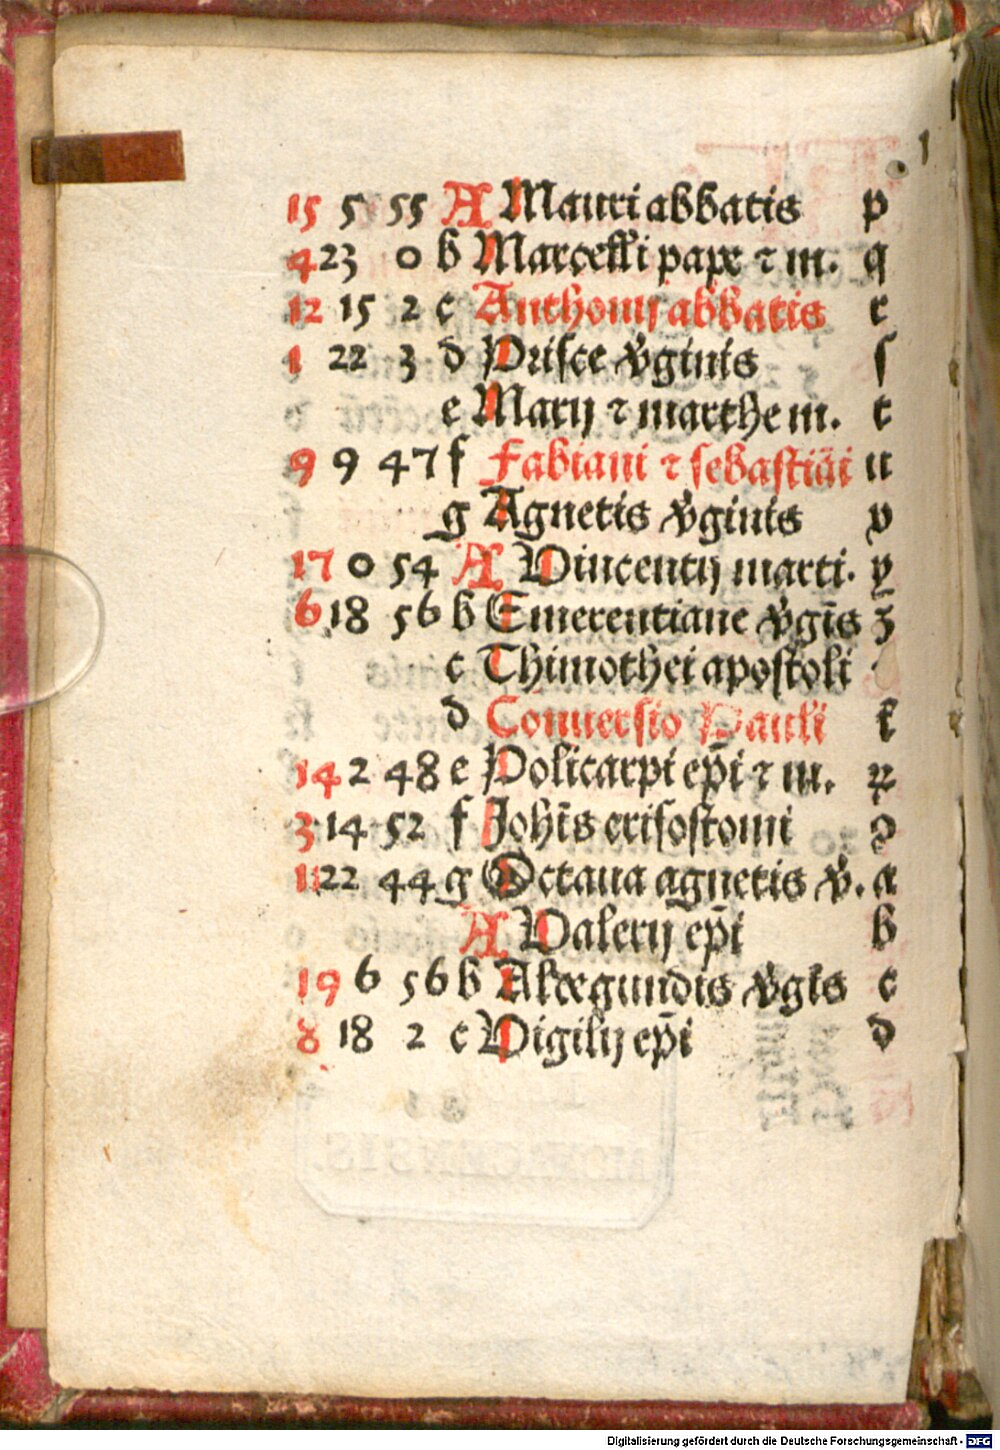 1
15 5 55 A Mauri abbatis p
4 23 0 b Marcelli pape ⁊ m. q
12 15 2 c Anthonij abbatis r
1 22 3 d Prisce v̔ginis ſ
e Marij ⁊ marthe m. t
9 9 47 f Fabiani ⁊ sebastiāi u
g Agnetis v̔ginis v
17 0 54 A Vincentij marti. y
6 18 56 b Emerentiane v̔gīs ʒ
c Thimothei apostoli
d Conuersio Pauli
14 2 48 e Policarpi ep̄i ⁊ m.
3 14 52 f Joh̄is crisostomi
11 22 44 g Octaua agnetis v̔. a
A Valerij ep̄i b
19 6 56 b Aldegundis v̔gīs c
8 18 2 c Vigilij ep̄i d
Digitalisierung gefördert durch die Deutsche Forschungsgemeinschaft - DFG